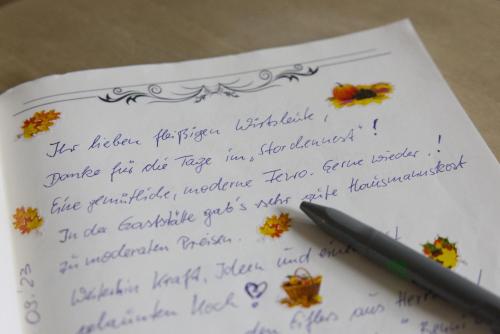 Ihr lieben fleißigen Wirtsleute,
Danke für die Tage im „Storchennest"!
Eine gemütliche, moderne FeWo. Gerne wieder.!
In der Gaststätte gab's sehr gute Hausmannskost
zu moderaten Preisen.
Weiterhin Kraft, Ideen und einen
gelaunten Koch!
den Eiflers aus
09.23